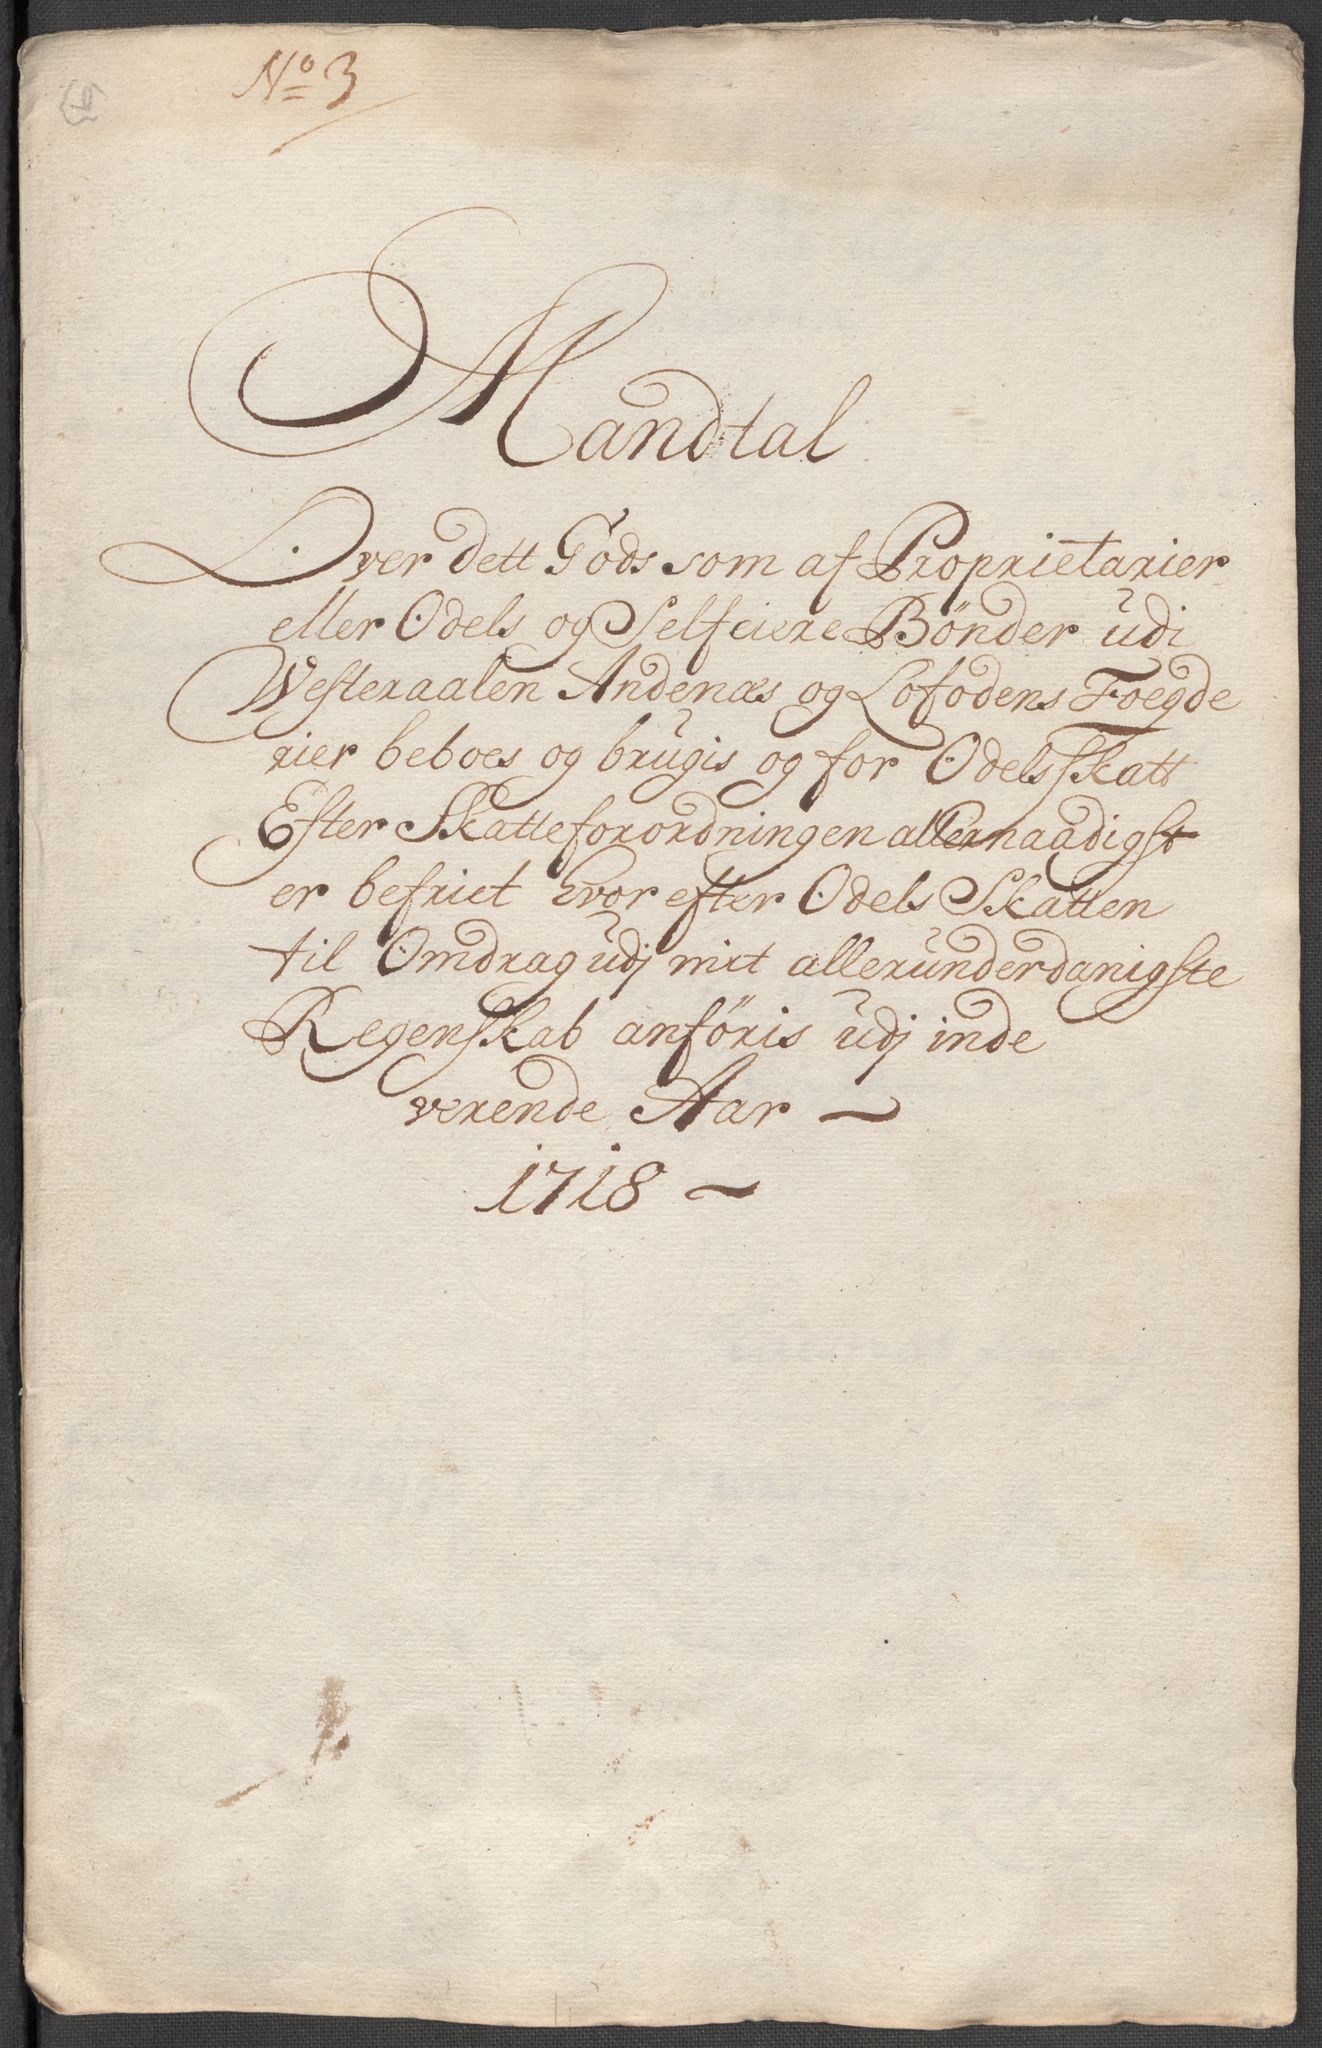 No 3
Mandtal
Over dett Gods som af Proprietarier
eller Odels og Selfeiere Bönder udi
Westeraalen Andenæs og Lofodens Foegde
rier beboes og brugis og for Odelsskatt
Efter Skatteforordningen allernaadigst
er befriet hvor efter Odels Skatten
til Omdrag udj mit allerunderdanigste
Regenskab anföris udj inde
verende Aar
1718